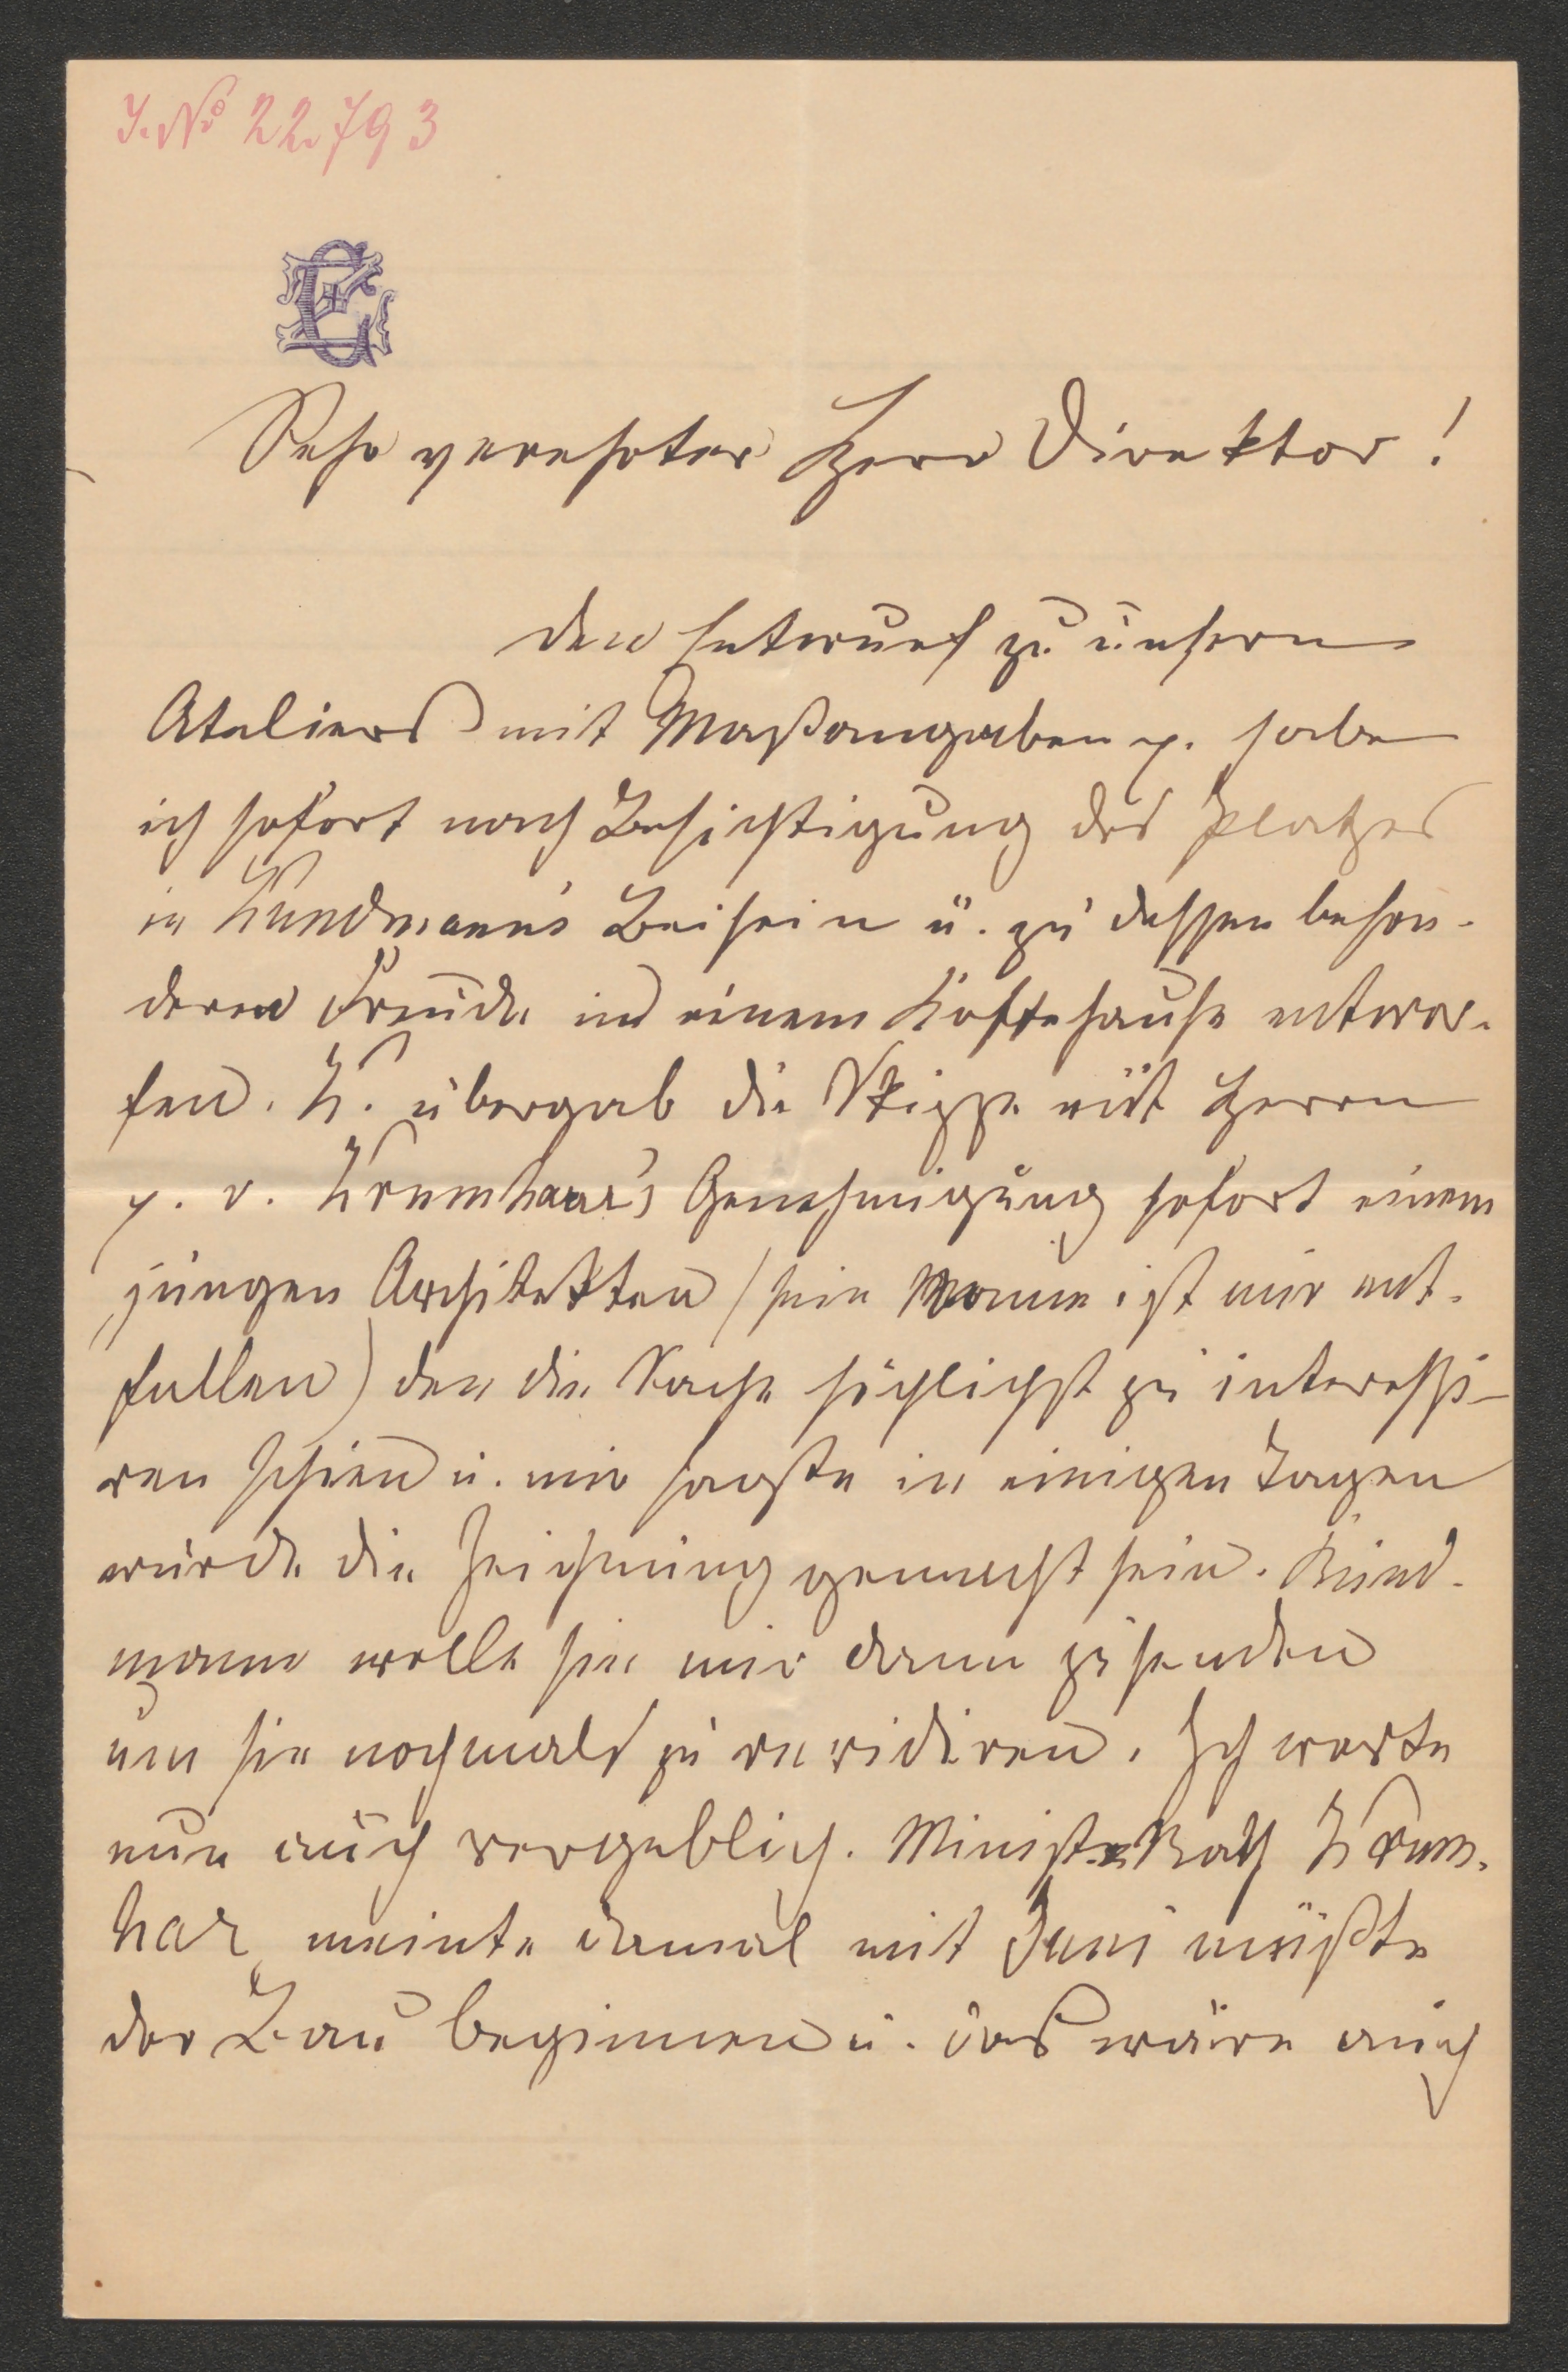 J. No 22.793
EG
Sehr verehrter Herr Direktor!
den Entwurf zu unsern
Ateliers mit Maßangaben p. habe
ich sofort nach Besichtigung des Platzes
in Kundmann's Beisein u. zu dessen beson-
deren Freude in einem Kaffehause entwor-
fen. K. übergab die Skizze mit Herrn
p. v. Krumhaar's Genehmigung sofort einem
jungen Architekten (sein Name ist mir ent-
fallen) den die Sache höchlichst zu interessi-
ren schien u. mir sagte in einigen Tagen
würde die Zeichnung gemacht sein. Kund-
mann wolle sie mir dann zusenden
um sie nochmals zu revidiren. Ich warte
nun auch vergeblich. Minist. Rath Krum-
har meinte damal mit Juni müßte
der Bau beginnen u. das wäre auch